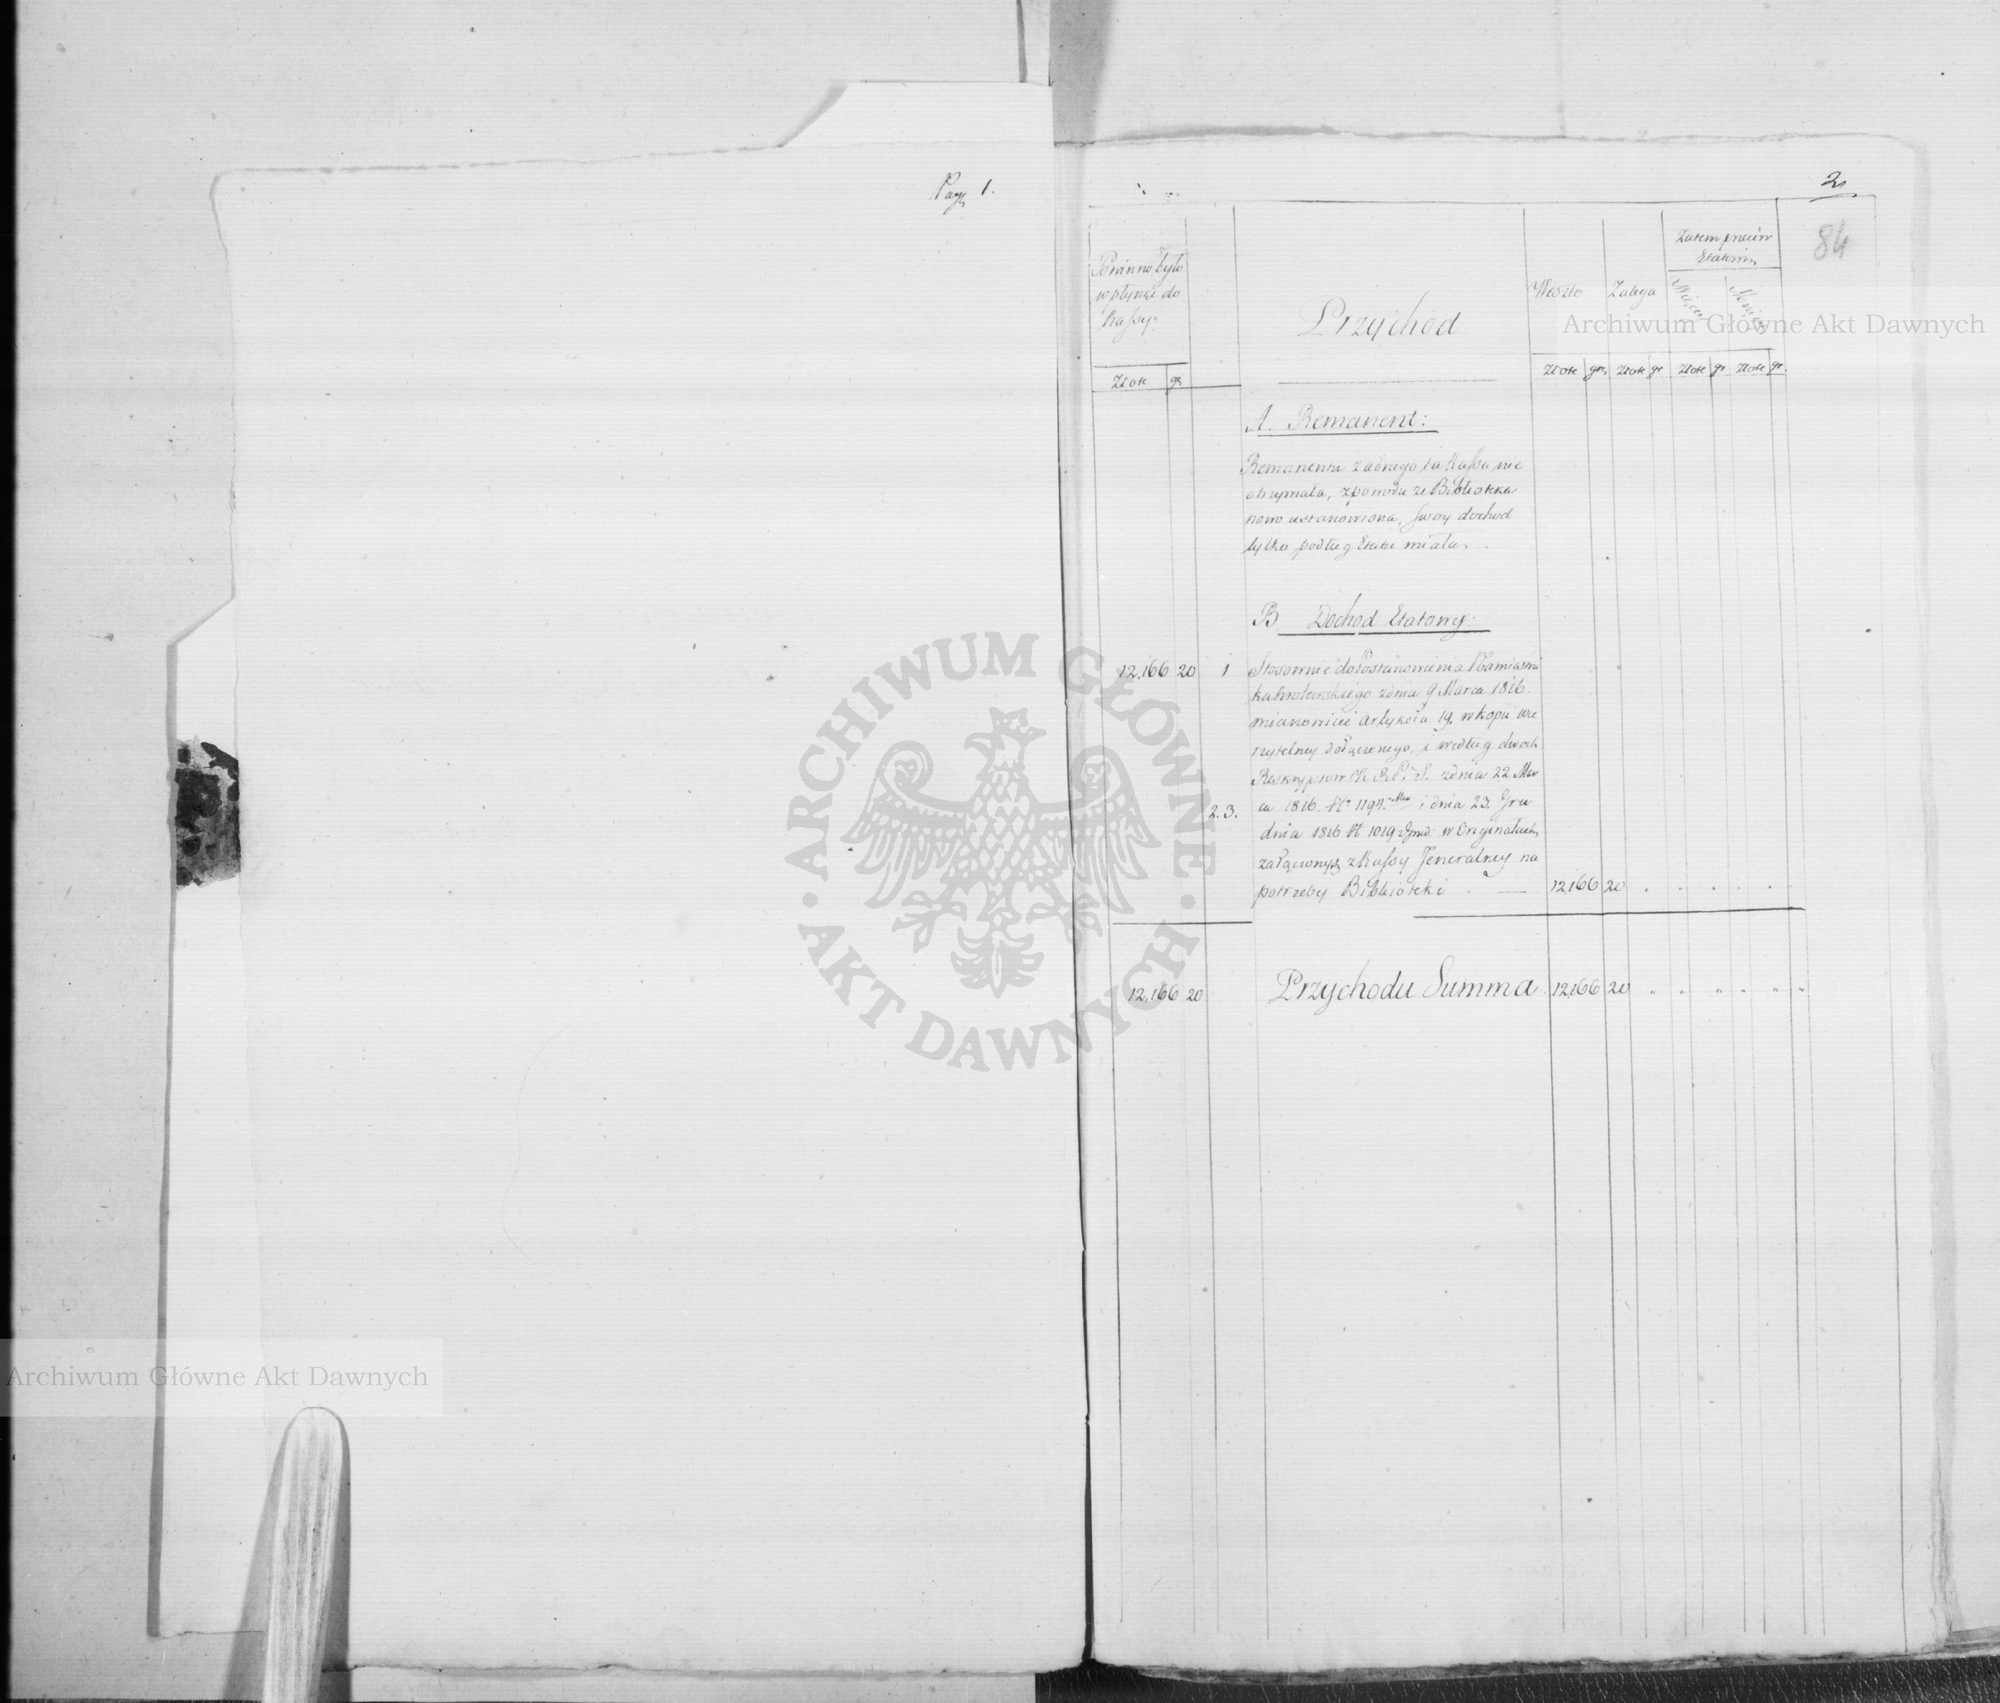 Pag 1.
2
84
Powinno było
wpłynąć do
Kassy.
Przychód
Weszło
Zalega
Zatem przeciw
Etatowi
Więcej
Mniej
Złote gr.
Złote gr. Złote gr Złote gr Złote gr.
A. Remanent:
Remanentu żadnego ta Kassa nie
otrzymała, z powodu że Biblioteka
nowo ustanowiona, swoy dochod
tylko podług Etatu miała.
B Dochod Etatowy:
12,166 20 1 Stosownie do Postanowienia Namiestni
ka Krolewskiego z dnia 9 Marca 1816.
mianowicie Artykułu 19. w kopii wie
rzytelney dołączonego, i według dwoch
Reskryptow z dnia 22 Mar
2.3. ca 1816. No 1194. i dnia 23. Gru
dnia 1816 N 1019 w Originałach
załączonych z Kassy Jeneralney na
potrzeby Biblioteki 12,166 20
12,166 20 Przychodu Summa 12,166 20
Archiwum Główne Akt Dawnych
ARCHIWUM GŁÓWNE · AKT DAWNYCH ·
Archiwum Główne Akt Dawnych